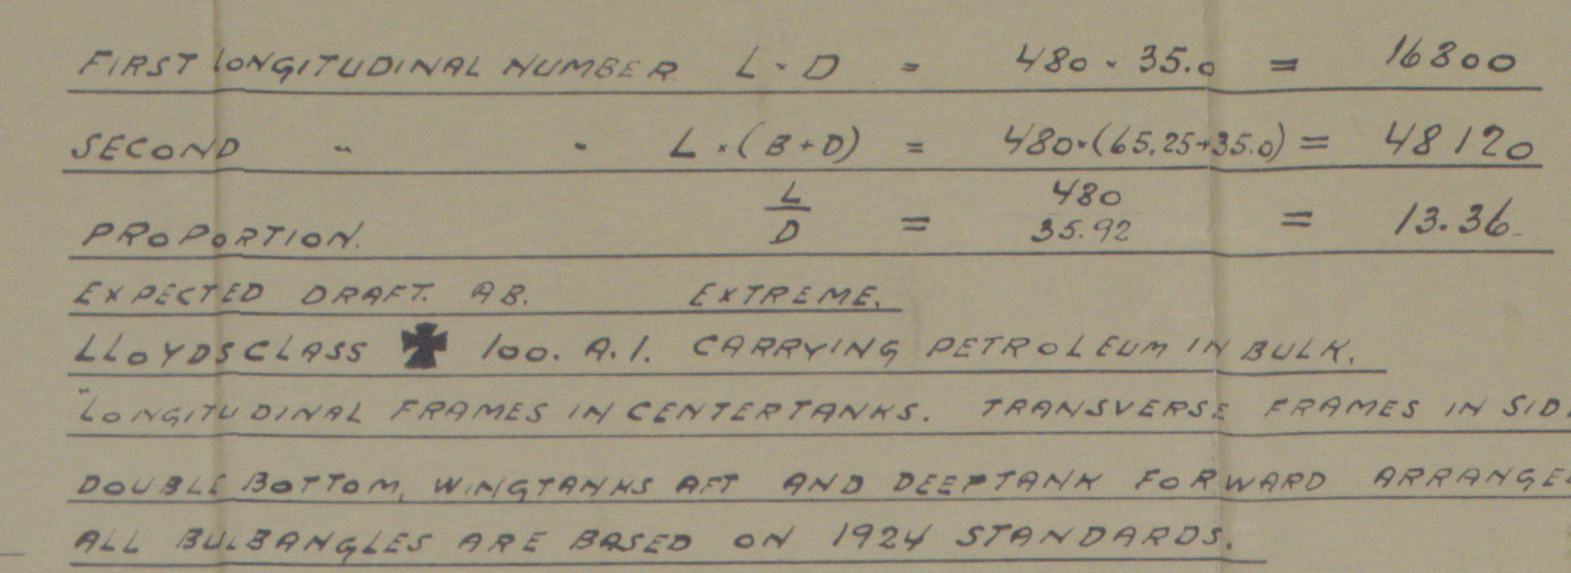 FIRST LONGITUDINAL NUMBER L × D = 480 × 35.0 = 16800
SECOND " " L × (B+D) = 480×(65.25+35.0) = 48120
PROPORTION. L/D = 480 35.92 = 13.36
EXPECTED DRAFT. AB. EXTREME.
LLOYDSCLASS ✠ 100. A.1. CARRYING PETROLEUM IN BULK.
"LONGITUDINAL FRAMES IN CENTERTANKS. TRANSVERSE FRAMES IN SID
DOUBLE BOTTOM, WINGTANKS AFT AND DEEPTANK FORWARD ARRANGE
ALL BULBANGLES ARE BASED ON 1924 STANDARDS.